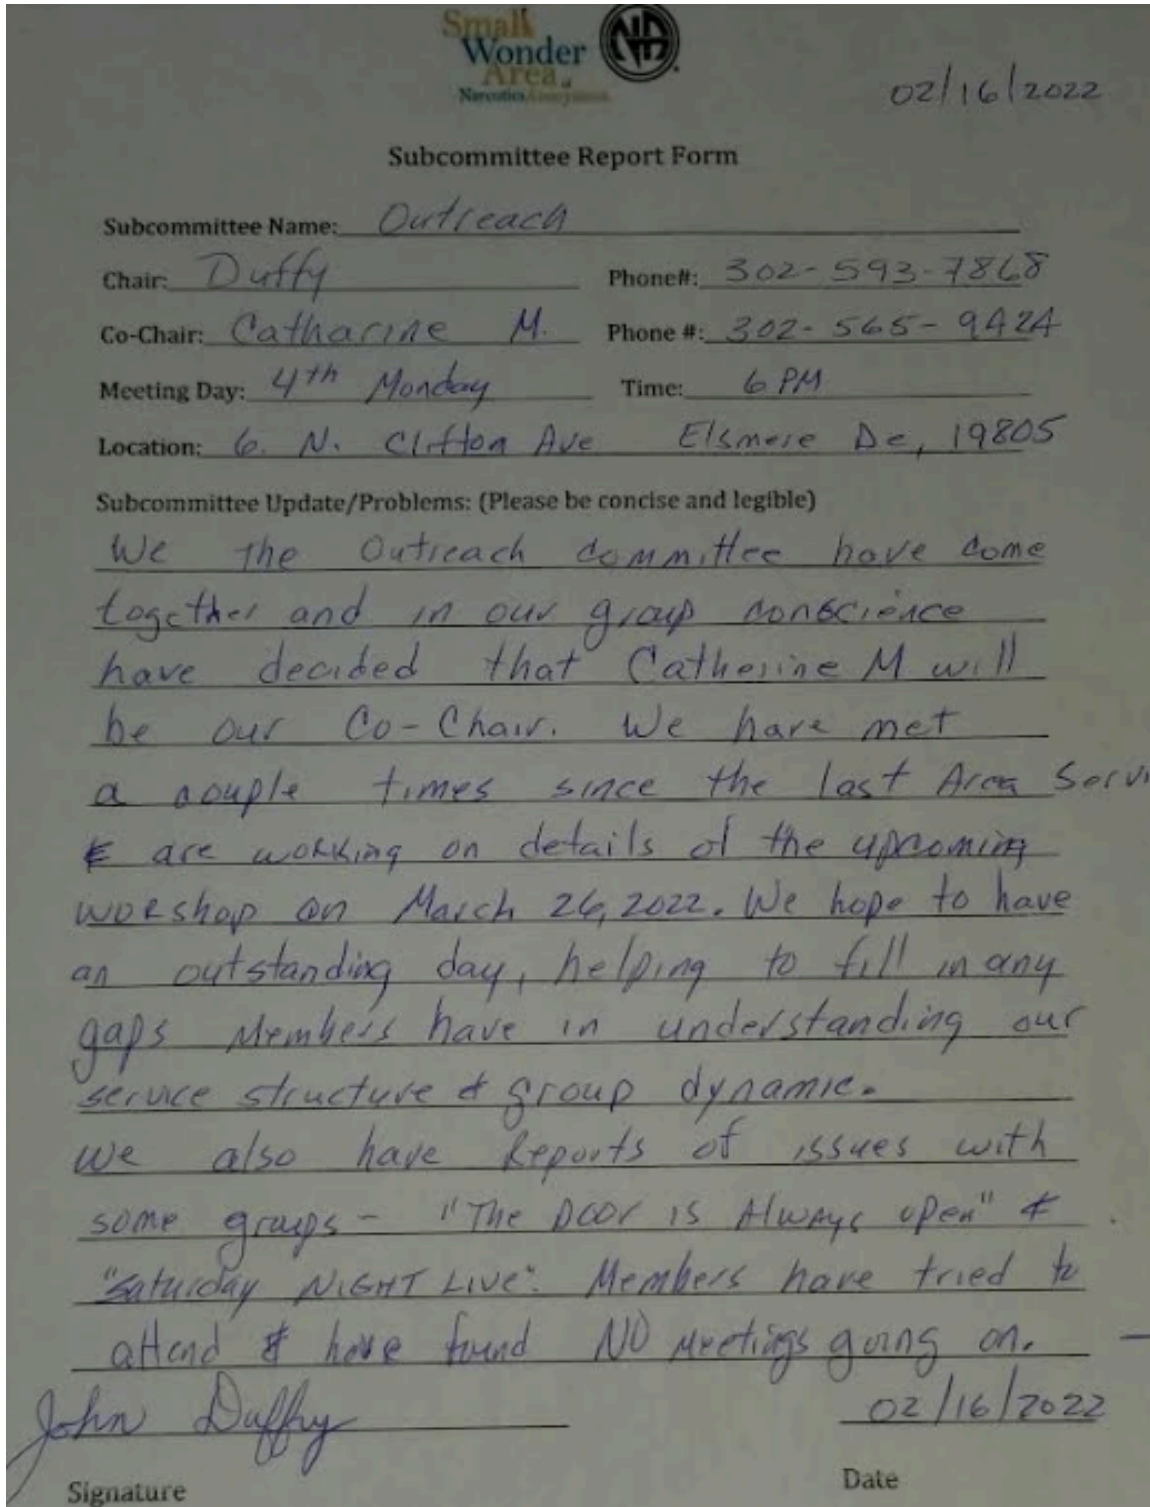 Small
Wonder
Area of
Narcotics Anonymous
NA
02/16/2022
Subcommittee Report Form
Subcommittee Name: Outreach
Chair: Duffy Phone#: 302-593-7868
Co-Chair: Catharine M. Phone #: 302-565-9424
Meeting Day: 4th Monday Time: 6 PM
Location: 6. N. Clifton Ave Elsmere De, 19805
Subcommittee Update/Problems: (Please be concise and legible)
We the Outreach committee have come
together and in our group conscience
have decided that Catherine M will
be our Co-Chair. We have met
a couple times since the last Area Servi
& are working on details of the upcoming
worshop on March 26, 2022. We hope to have
an outstanding day, helping to fill in any
gaps Members have in understanding our
service structure & group dynamic.
We also have Reports of issues with
some groups - "The Door is Always open" &
"Saturday NIGHT LIVE". Members have tried to
attend & have found NO Meetings going on. -
John Duffy 02/16/2022
Signature Date